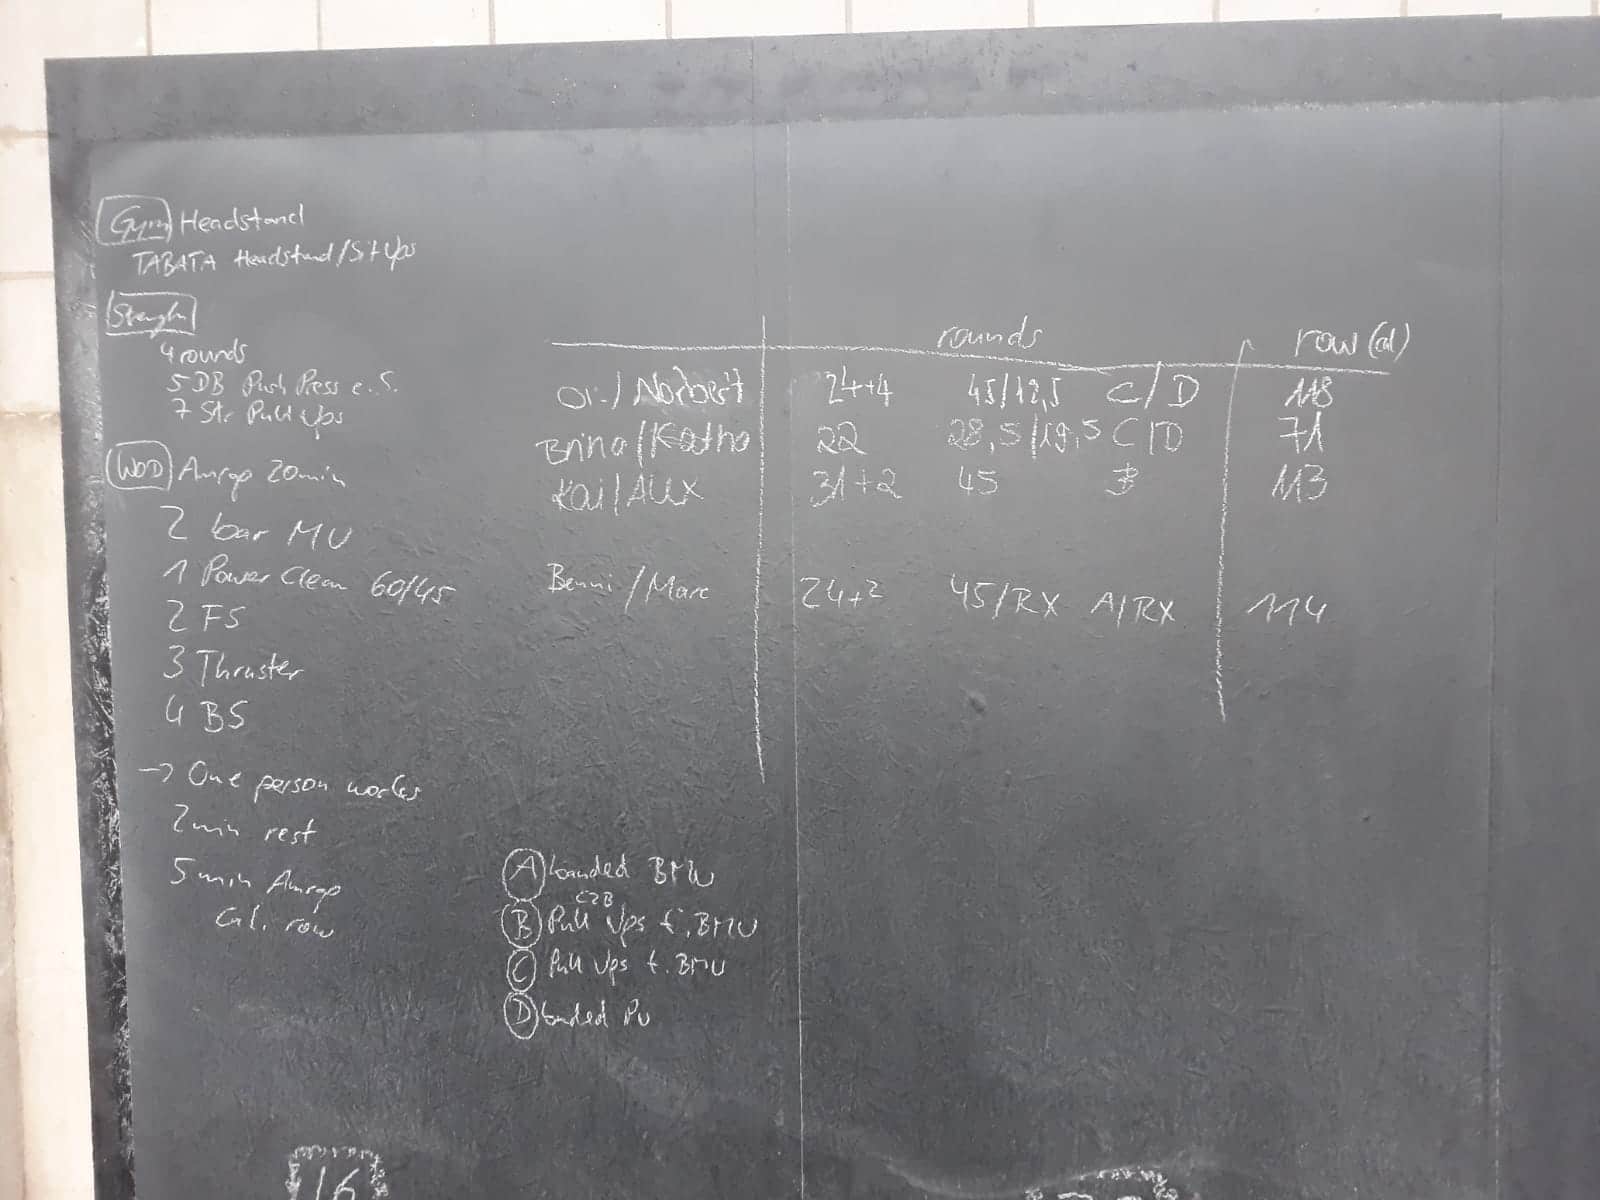 Gym Headstand
TABATA Headstand/Sit Ups
Strength
4 rounds
5 DB Push Press e.S.
7 Str. Pull Ups
WOD Amrap 20min
2 bar MU
1 Power Clean 60/45
2 FS
3 Thruster
4 BS
-> One person works
2min rest
5 min Amrap
Cal. row
rounds row (cal)
/ Norbert 24+4 45/ C/D 118
Brina/Katha 22 28,5/19,5 C/D 71
Kai/Alex 31+2 45 B 113
Benni/Marc 24+2 45/RX A/RX 114
A banded BMU
C2B
B Pull Ups f. BMU
C Pull Ups f. BMU
D banded PU
16